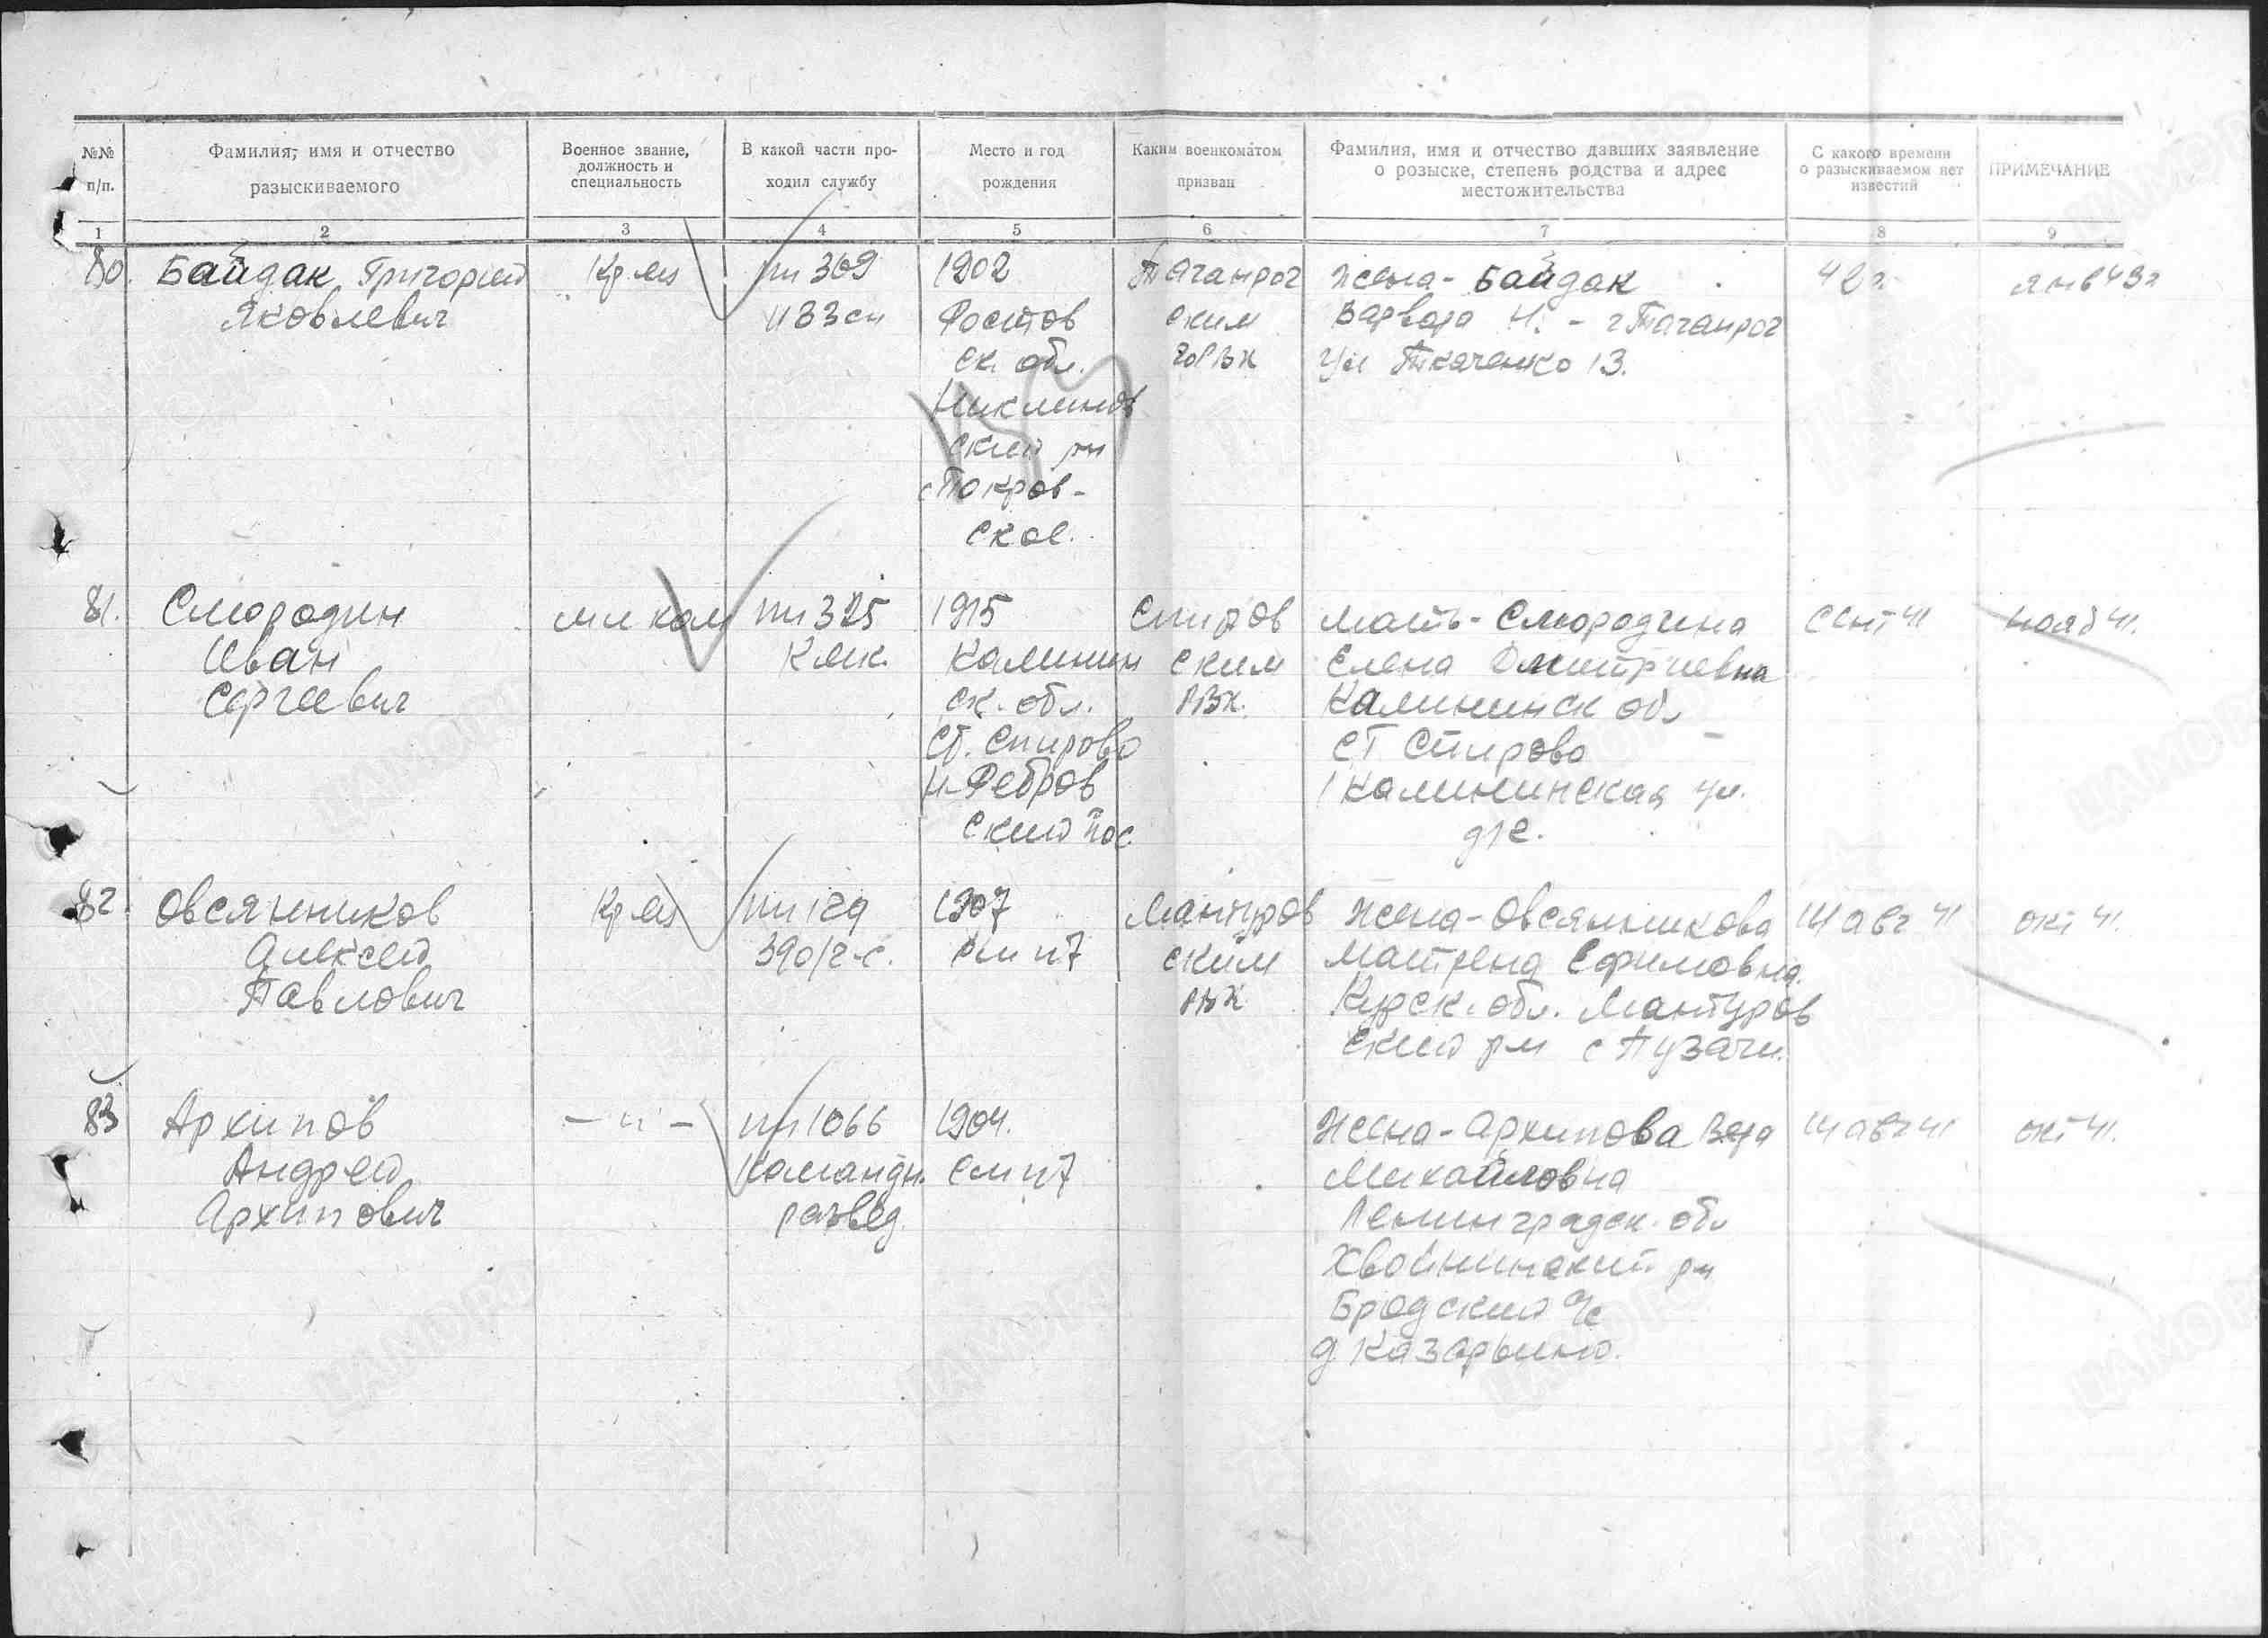 №№ п/п.
Фамилия, имя и отчество разыскиваемого
Военное звание, должность и специальность
В какой части проходил службу
Место и год рождения
Каким военкоматом призван
Фамилия, имя и отчество давших заявление о розыске, степень родства и адрес местожительства
С какого времени о разыскиваемом нет известий
ПРИМЕЧАНИЕ
1 2 3 4 5 6 7 8 9
80. Байдак Григорий
Яковлевич
Кр-ец
пп 309
1133 сп
1902
Ростов
ск. обл.
ский рн
с Покров-
ское.
Таганрог
ским
горвк
жена - Байдак
Варвара Н. - г Таганрог
ул Ткаченко 13.
42 г.
янв 43 г
81. Смородин
Иван
Сергеевич
мл ком
пп 325
1915
Калинин
ск. обл.
ст. Спирово
ский пос.
Спиров
ским
РВК.
мать - Смородина
Елена Дмитриевна
Калининск обл
СТ Спирово
1 Калининская ул.
сент 41
нояб 41.
82. Овсянников
Алексей
Павлович
Кр-ец
пп 129
1907
см п 7
Мантуров
ским
РВК
жена - Овсянникова
Матрена Ефимовна.
Курск. обл. Мантуров
ский рн с Пузачи.
III авг 41
окт 41.
83 Архипов
Андрей
Архипович
— " —
пп 1066
командн.
развед.
1904.
см п 7
Жена - Архипова Вера
Михайловна
Ленинградск. обл
Хвойнинский рн
Бродский с/с
д Казарьино.
III авг 41
окт 41.